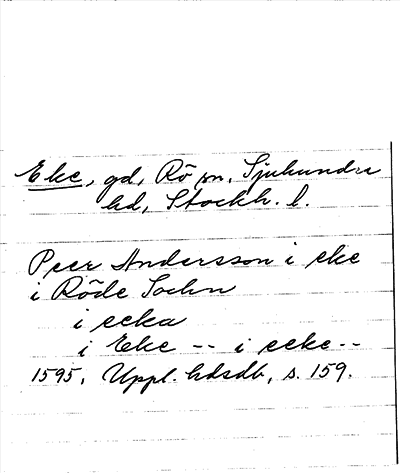 Eke, gd, Rö sn, Sjuhundra
hd, Stockh. l.
Peer Andersson i eke
i Röde Sochn
i ecka
i Eke -- i eeke --
1595, Uppl. hdsdb, s. 159.